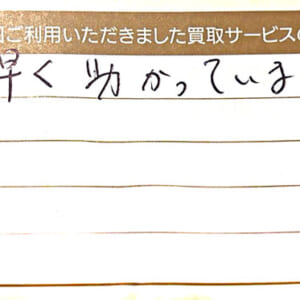 ご利用いただきました買取サービスの
早く助かっていま